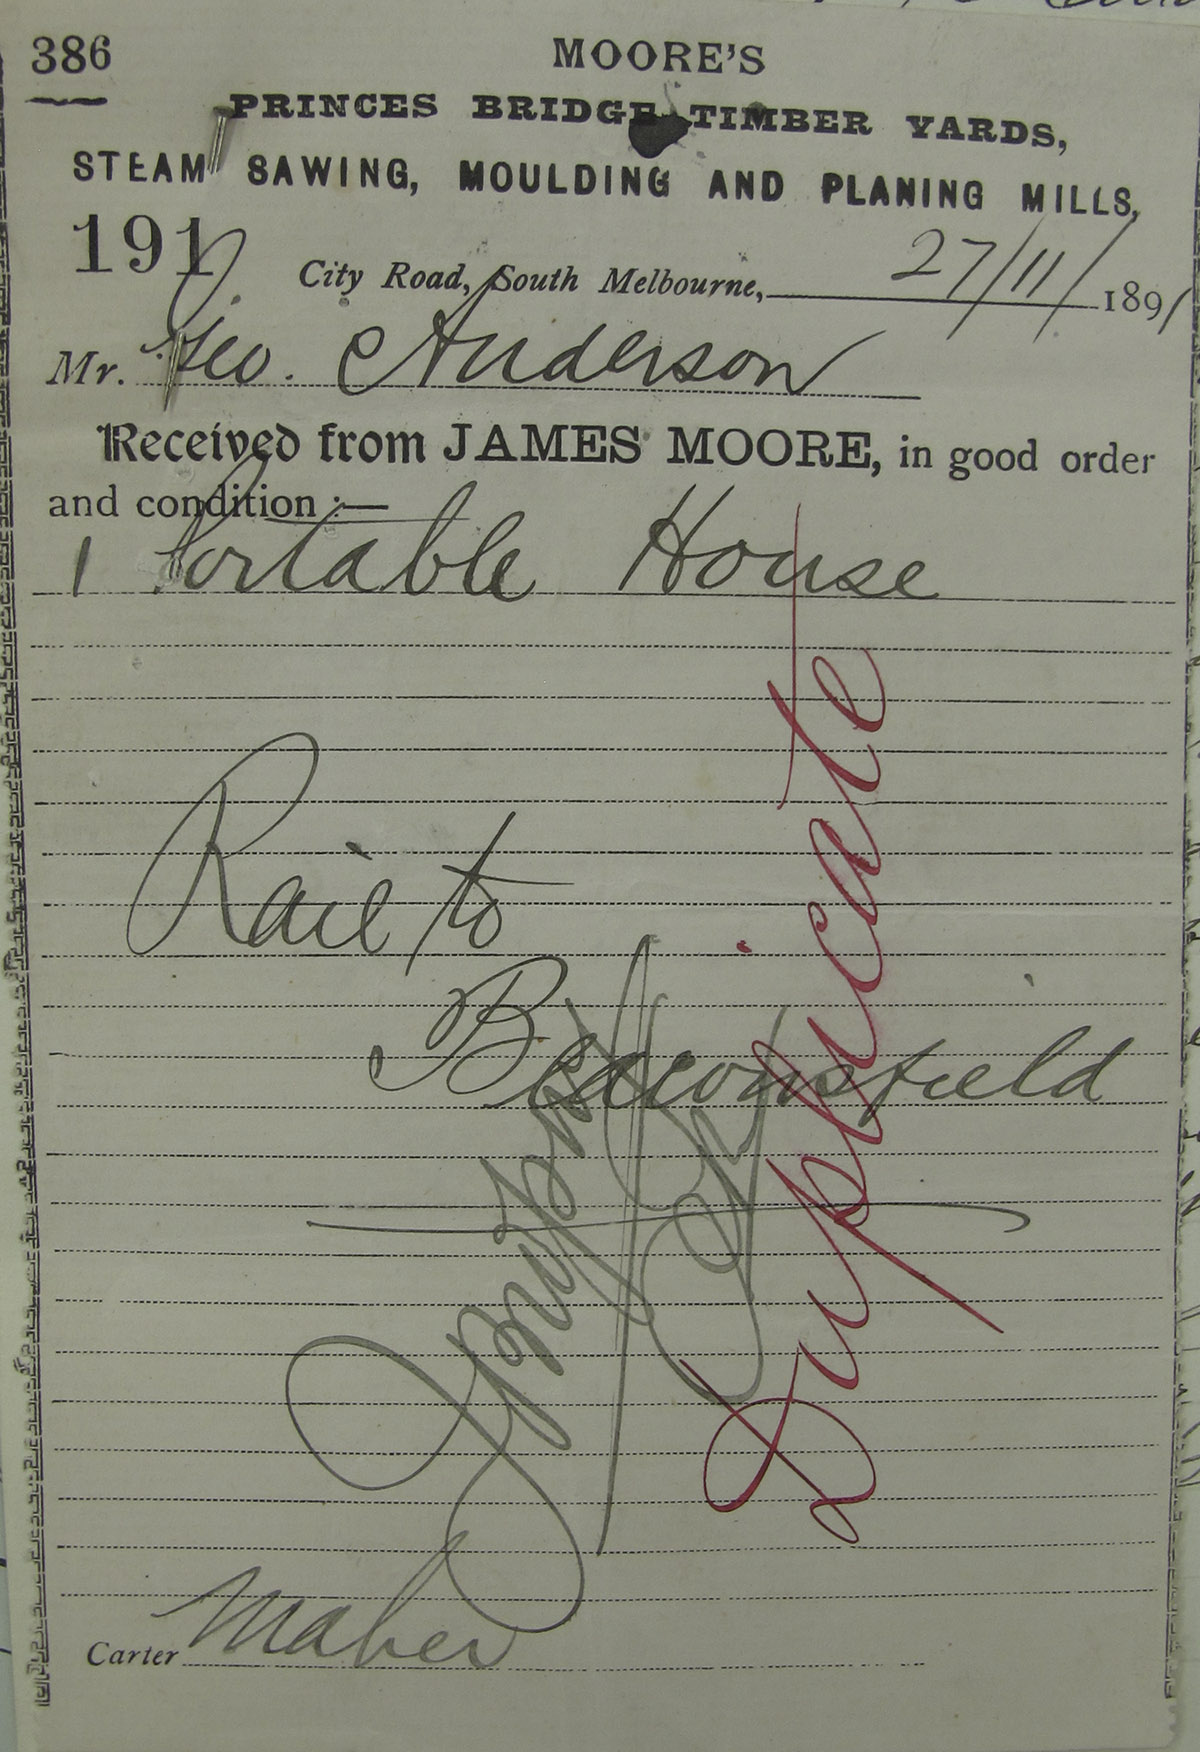 386
MOORE'S
PRINCES BRIDGE TIMBER YARDS,
STEAM SAWING, MOULDING AND PLANING MILLS,
191
City Road, South Melbourne, 27/11/1891
Mr. Geo. Anderson
Received from JAMES MOORE, in good order
and condition :—
1 Portable House
Rail to
Beaconsfield
Duplicate
Carter Maher